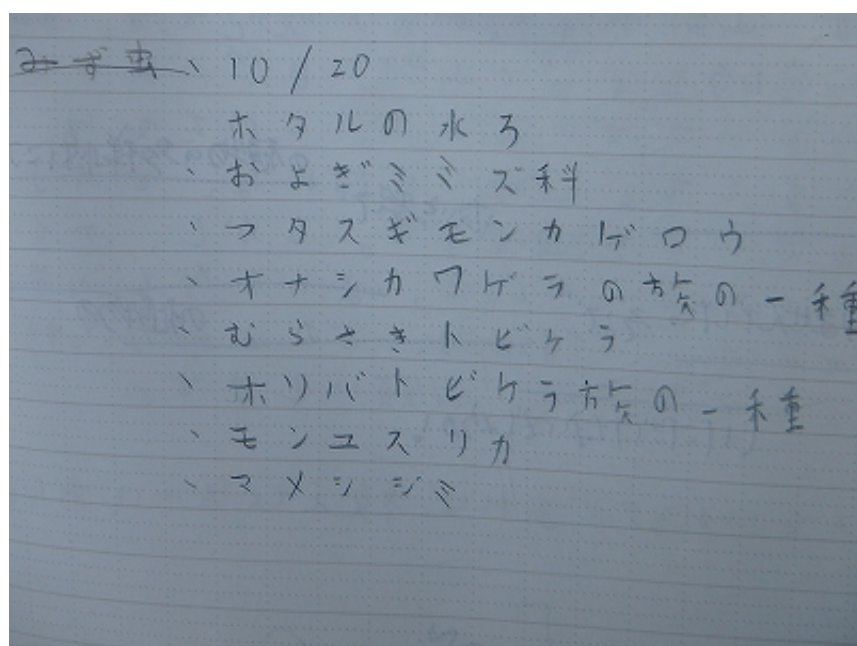 みず虫、10/20
ホタルの水ろ
、およぎミミズ科
、フタスギモンカゲロウ
、オナシカワゲラの族の一種
、むらさきトビケラ
、ホソバトビケラ族の一種
、モンユスリカ
、マメシジミ